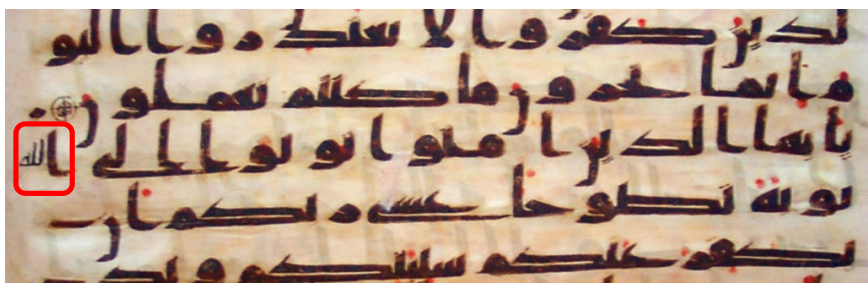 لذين كفروا لا تعتذروا اليو
م انما تجزون ما كنتم تعملون
يايها الذين امنوا توبوا الى الله
توبة نصوحا عسى ربكم ان
يكفر عنكم سيتكم